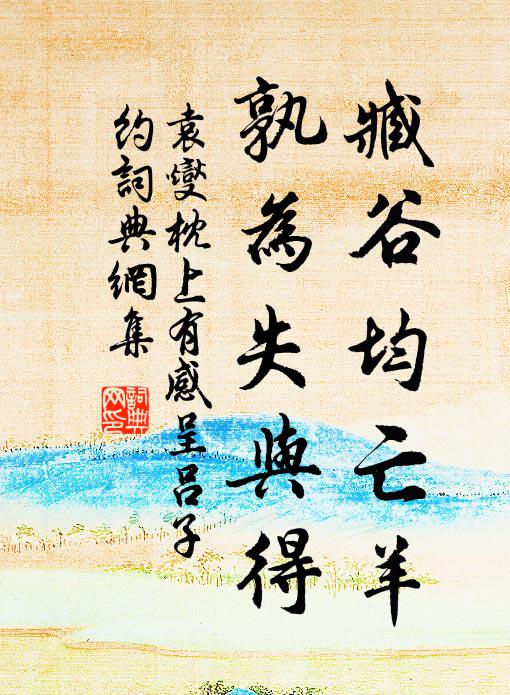 臧谷均亡羊
孰為失與得
袁燮枕上有感呈呂子
約詞典網集
詞典
网印